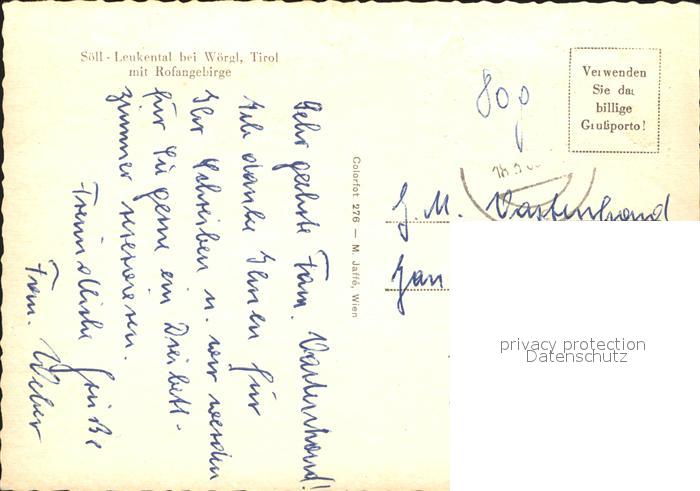 Söll - Leukental bei Wörgl, Tirol
mit Rofangebirge
Sehr geehrte Fam. Vastenhond!
Ich danke Ihnen für
Ihr Schreiben u. wir werden
für Sie gerne ein Dreibett-
zimmer reservieren.
Freundliche Grüße
Fam. Weber
Colorfot 276 — M. Jaffé, Wien
80 g
Verwenden
Sie das
billige
Grußporto!
J. M. Vastenhond
Jan
privacy protection
Datenschutz